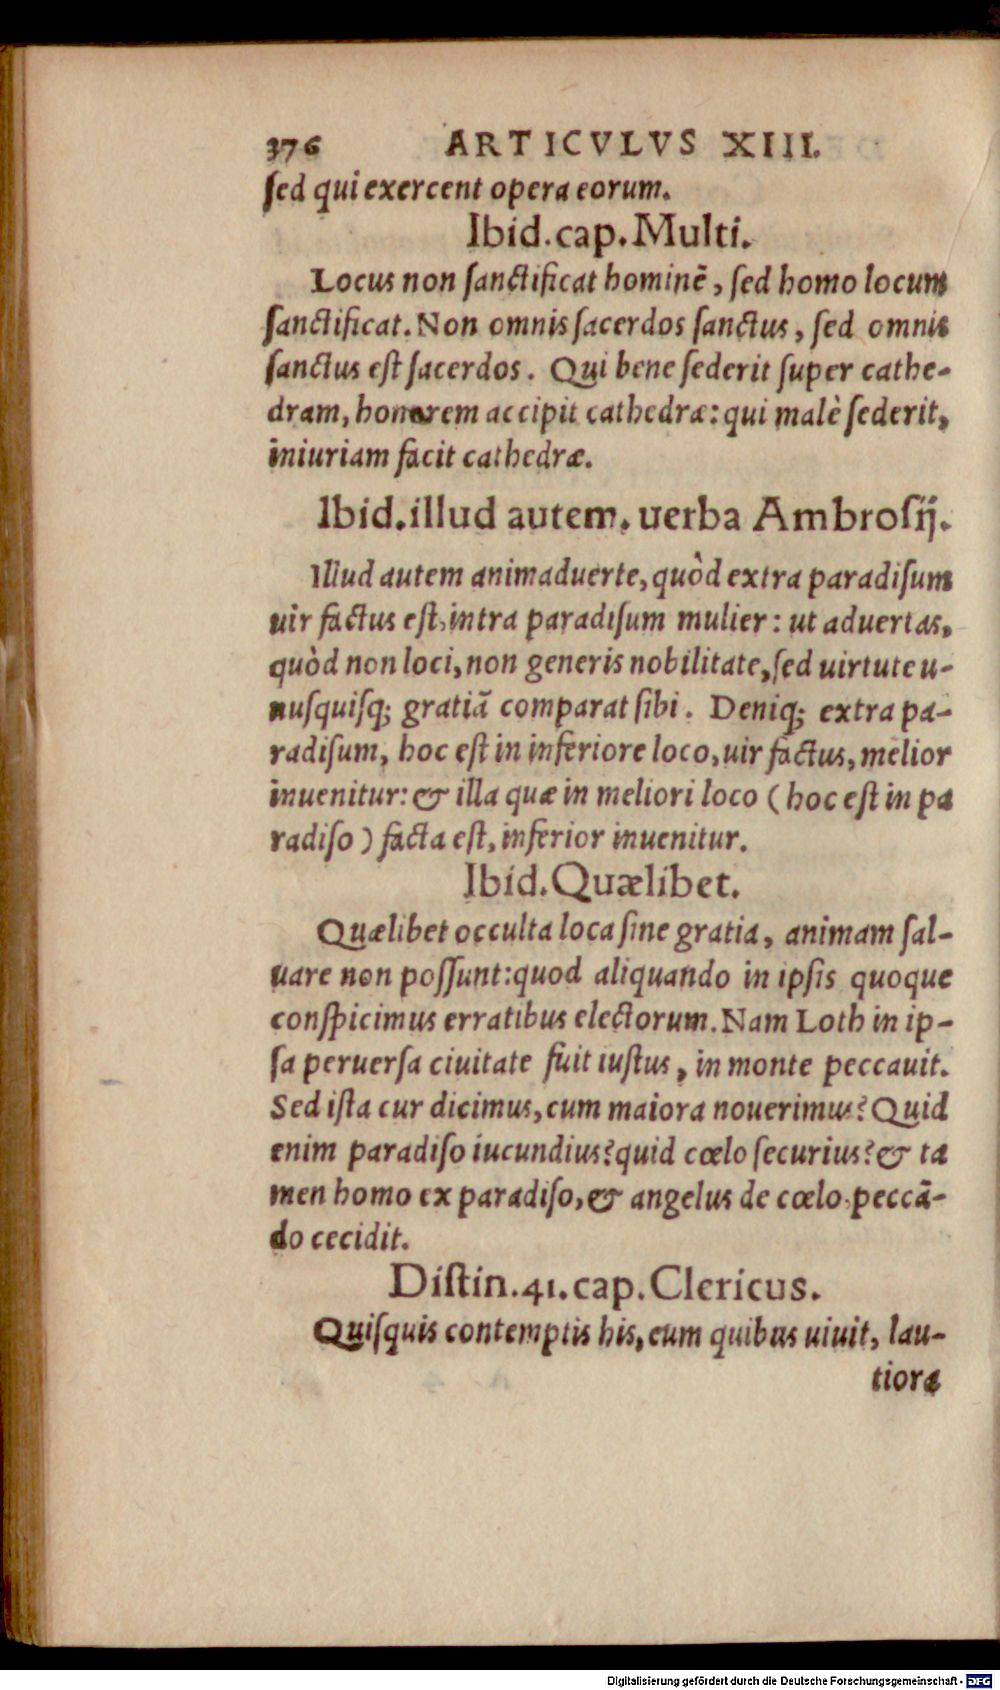 376 ARTICVLVS XIII.
ſed qui exercent opera eorum.
Ibid.cap.Multi.
Locus non ſanctificat hominẽ, ſed homo locum
ſanctificat. Non omnis ſacerdos ſanctus, ſed omnis
ſanctus eſt ſacerdos. Qui bene ſederit ſuper cathe-
dram, honorem accipit cathedræ: qui malè ſederit,
iniuriam facit cathedræ.
Ibid.illud autem.uerba Ambroſij.
Illud autem animaduerte, quòd extra paradiſum
uir factus eſt, intra paradiſum mulier: ut aduertas,
quòd non loci, non generis nobilitate, ſed uirtute u-
nuſquiſq; gratiã comparat ſibi. Deniq; extra pa-
radiſum, hoc eſt in inferiore loco, uir factus, melior
inuenitur: & illa quæ in meliori loco (hoc eſt in pa
radiſo) facta eſt, inferior inuenitur.
Ibid.Quælibet.
Quælibet occulta loca ſine gratia, animam ſal-
uare non poſſunt: quod aliquando in ipſis quoque
conſpicimus erratibus electorum. Nam Loth in ip-
ſa peruerſa ciuitate fuit iuſtus, in monte peccauit.
Sed iſta cur dicimus, cum maiora nouerimus? Quid
enim paradiſo iucundius? quid cœlo ſecurius? & ta
men homo ex paradiſo, & angelus de cœlo peccã-
do cecidit.
Diſtin.41.cap.Clericus.
Quiſquis contemptis his, cum quibus uiuit, lau-
tiora
Digitalisierung gefördert durch die Deutsche Forschungsgemeinschaft - DFG